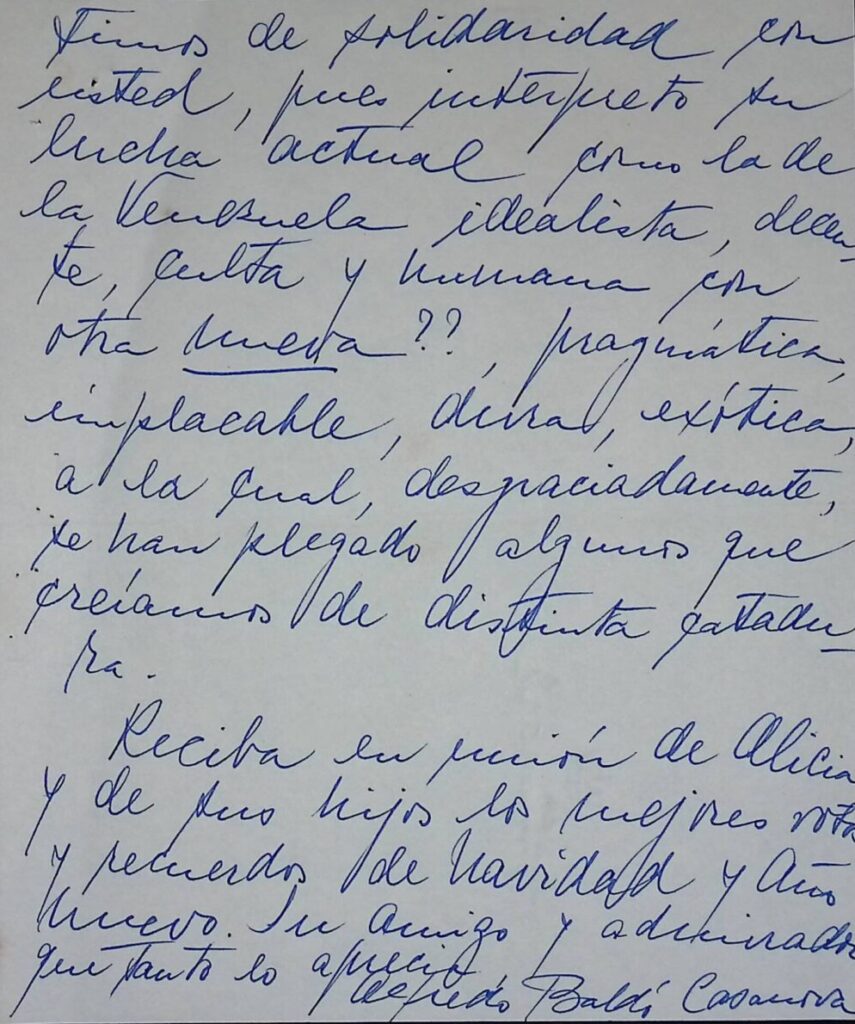 timos de solidaridad con
usted, pues interpreto su
lucha actual como la de
la Venezuela idealista, decen-
te, culta y humana con
otra nueva??, pragmática,
implacable, dura, exótica,
a la cual, desgraciadamente,
se han plegado algunos que
creíamos de distinta catadu-
ra.
Reciba en unión de Alicia
y de sus hijos los mejores votos
y recuerdos de Navidad y Año
Nuevo. Su amigo y admirador
que tanto lo aprecia,
Alfredo Baldó Casanova